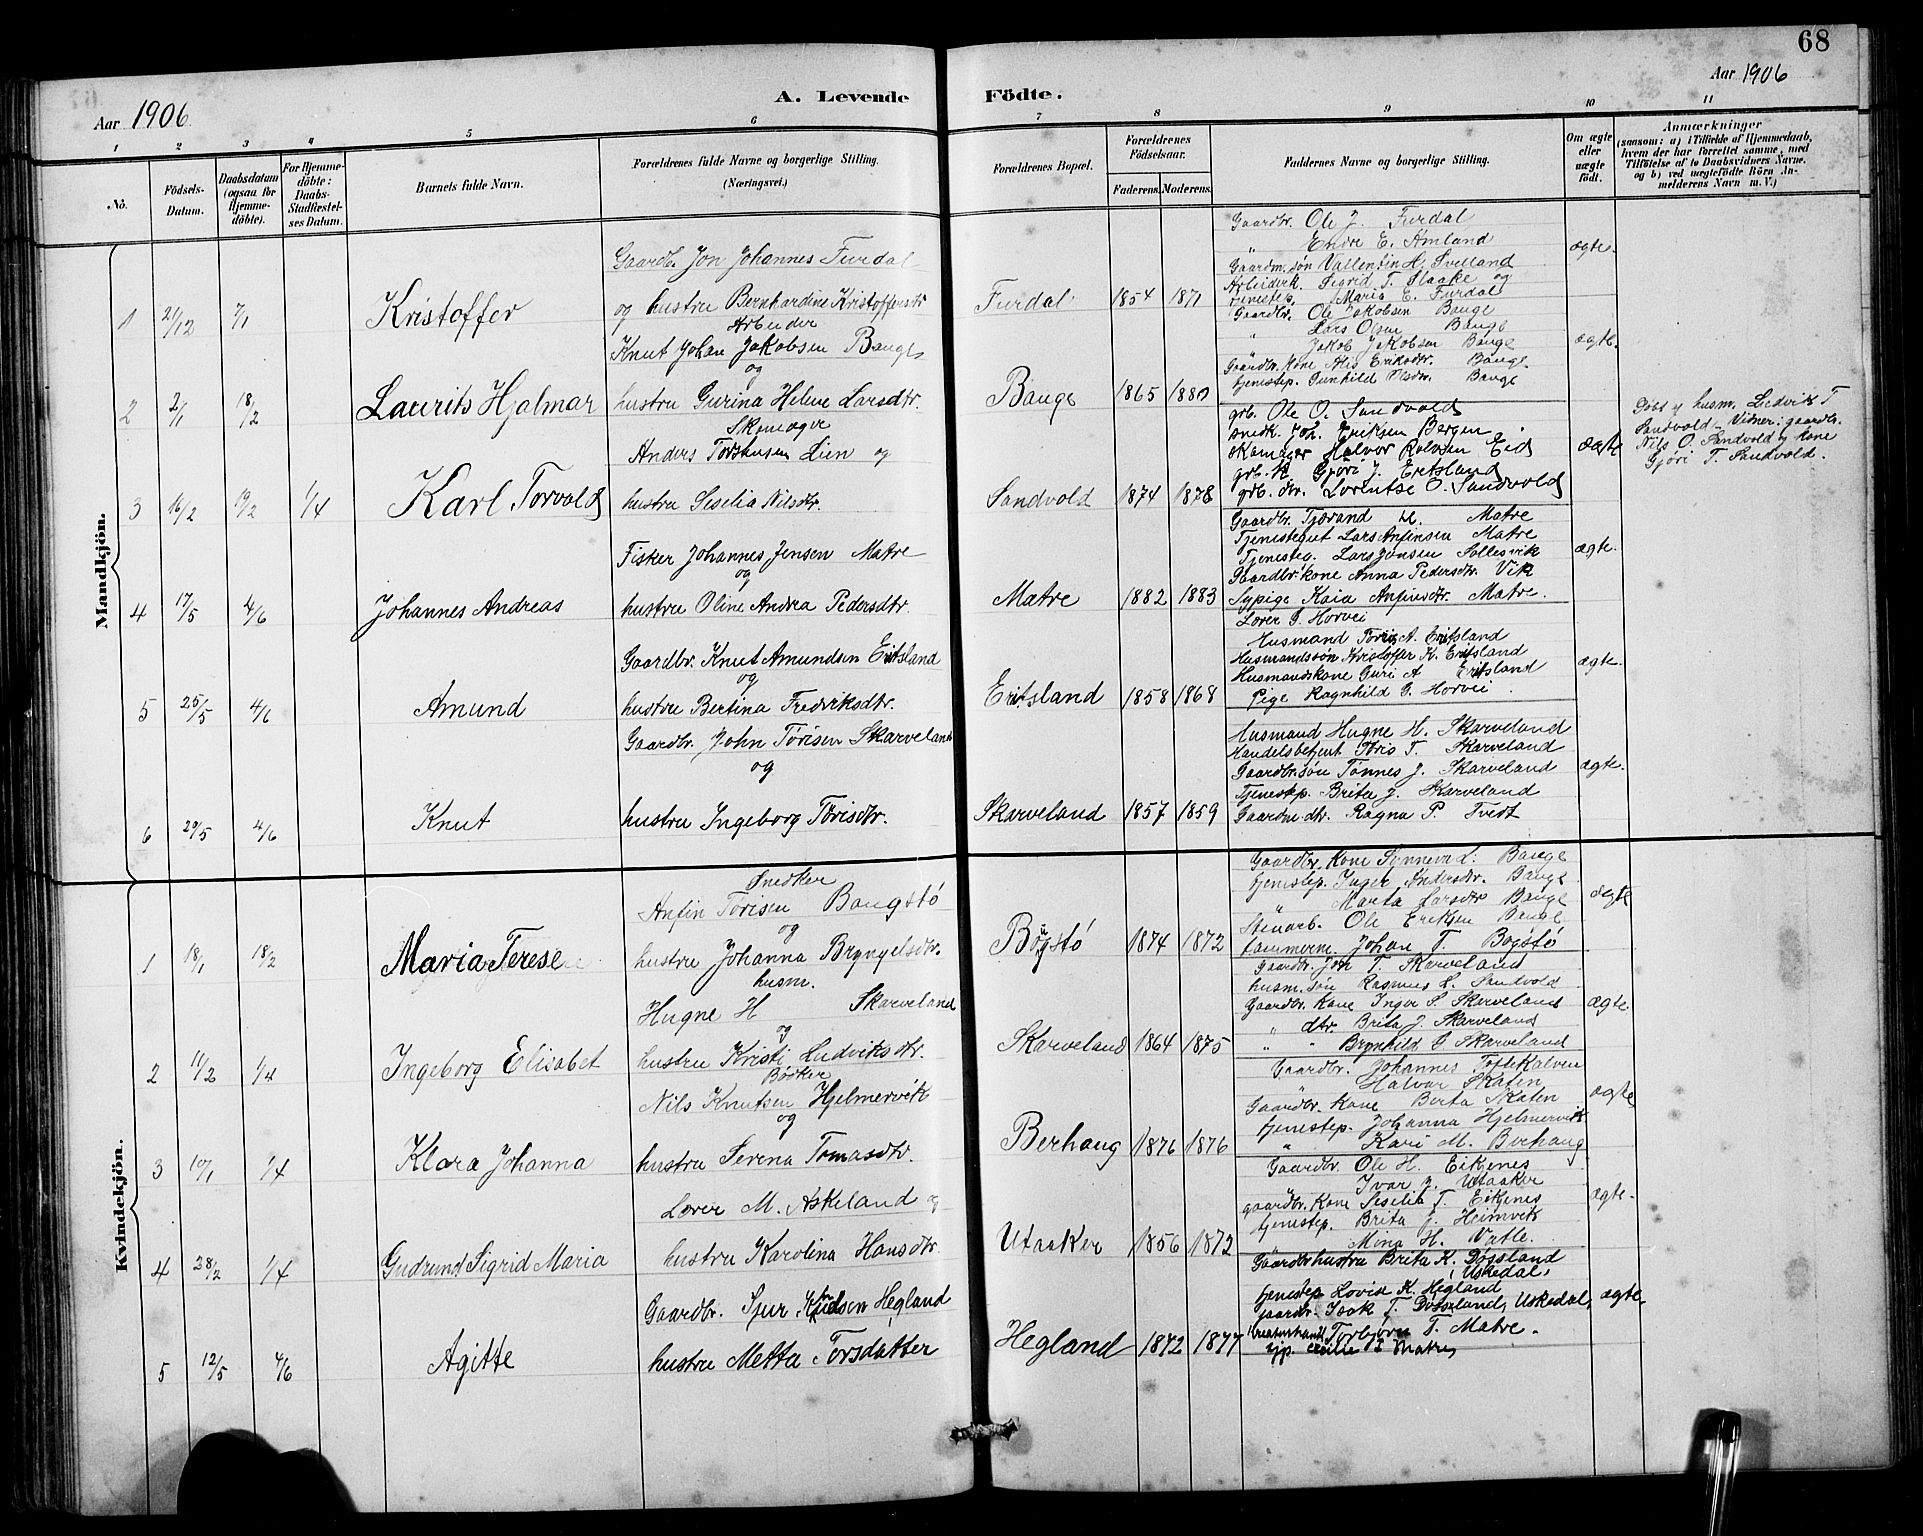 68
Aar 1906
A. Levende Födte.
Aar 1906
1 2 3 4 5 6 7 8 9 10 11
No.
Födsels-Datum.
Daabsdatum (ogsaa for Hjemmedöbte).
For Hjemmedöbte: Daabs-Stadfæstelses Datum.
Barnets fulde Navn.
Forældrenes fulde Navne og borgerlige Stilling.
(Næringsvei.)
Forældrenes Bopæl.
Forældrenes Födselsaar.
Faderens. Moderens.
Faddernes Navne og borgerlige Stilling.
Om ægte eller uægte födt.
Anmærkninger
(saasom: a) i Tilfælde af Hjemmedaab, hvem der har forrettet samme, med Tilföielse af to Daabsvidners Navne, og b) ved uægtefödte Börn Anmelderens Navn m. V.)
Mandkjön.
1 21/12 7/1 Kristoffer
Gaardbr. Jon Johannes Furdal
og hustru Bernhardine Kristoffersdtr
Furdal 1854 1871
Gaardbr. Ole J. Furdal
" Endre E. Åmland
Gaardm.søn Vallentin H. Svelland
Arbeidsk. Sigrid T. Staake og
tjenestep. Maria E. Furdal
ægte.
2 2/1 18/2 Laurits Hjalmar
Arbeider
Knut Johan Jakobsen Bauge
og
hustru Gurina Helene Larsdtr.
Bauge 1865 1880
Gaardbr. Ole Jakobsen Bauge
" Lars Olsen Bauge
" Jakob Jakobsen Bauge
Gaardbr. Kone Eriksdtr. Bauge
tjenestep. Gunhild Olsdtr. Bauge
ægte.
3 16/2 19/2 1/4 Karl Torvald
Skomager
Anders Torstensen Lien og
hustru Sesilia Nilsdtr.
Sandvold 1874 1878
grb. Ole O. Sandvold
snedk. Joh. Eriksen Bergen
skomager Halvor Rolvsen Eid
grb. k. Gjøri J. Eritsland
grb. dtr. Lorentse O. Sandvold
ægte
Døbt af husm. Ludvik T
Sandvold. Vidner: gaardbr.
Nils O. Sandvold og kone
Gjöri T. Sandvold.
4 17/5 4/6 Johannes Andreas
Fisker Johannes Jensen Matre
og
hustru Oline Andrea Pedersdtr.
Matre 1882 1883
Gaardbr. Tjerand H. Matre
Tjenestegut Lars Anfinsen Matre
Tjenesteg. Lars Jonsen Sollesvik
Gaardbr.kone Anna Pedersdtr. Vik
Sypige Kaia Anfinsdtr. Matre.
ægte.
5 25/5 4/6 Amund
Gaardbr. Knut Amundsen Eritsland
og
hustru Bertina Fredriksdtr.
Eritsland 1858 1868
Lærer G. Horvei
Husmand Töris A. Eritsland
Husmandssön Kristoffer K. Eritsland
Husmandskone Guri A Eritsland
Pige Ragnhild G. Horvei
ægte.
6 29/5 4/6 Knut
Gaardbr. John Törisen Skarveland
og
hustru Ingeborg Törisdtr.
Skarveland 1857 1859
Husmand Hugne H. Skarveland
Handelsbetjent Töris T. Skarveland
Gaardbr.søn Tönnes J. Skarveland
Tjenestep. Brita J. Skarveland
Ragna P. Tvedt
ægte.
Kvindekjön.
1 18/1 18/2 Maria Terese
Snedker
Anfin Törisen Baugstö
og
hustru Johanna Bryngelsdtr.
Bögstö 1874 1872
Gaardbr. Kone Synneva L. Bauge
tjenestep. Inger Andersdtr. Bauge
" Marta Larsdtr Bauge
Stenarb. Ole Eriksen Bauge
tømmerm. Johan T. Bogstö
ægte
2 11/2 1/4 Ingeborg Elisabet
husm.
Hugne H Skarveland
og
hustru Kristi Ludviksdtr.
Skarveland 1864 1875
Gaardbr. Jon T. Skarveland
husm. sön Rasmus L. Sandvold
Gaardbr. Kone Inger S. Skarveland
" dtr. Brita J. Skarveland
" " Brynhild G Skarveland
ægte
3 10/1 1/4 Klara Johanna
Bödker
Nils Knutsen Hjelmervik
og
hustru Serena Tomasdtr.
Berhaug 1876 1876
Gaardbr. Johannes Toftekalven
" Halvor Skaten
Gaardbr. Kone Berta Skaten
tjenestep. Johanna Hjelmervik
" Kari M. Berhaug
ægte
4 28/2 1/4 Gudrund Sigrid Maria
Lærer M. Askeland og
hustru Karolina Hansdtr.
Utaaker 1856 1872
Gaardbr. Ole H. Eikenes
" Ivar J. Utaaker
gaardbr. Kone Sesilia T. Eikenes
tjenestep. Brita J. Heimvik
Mina H. Valle.
ægte.
5 12/5 4/6 Agitte
Gaardbr. Sjur Knudsen Hegland
hustru Metta Torsdatter
Hegland 1872 1877
Gaardbr.hustru Brita K. Døssland
Uskedal,
tjenestep Lovise K. Hegland
gaardbr. Isak T. Døssland, Uskedal,
Torbjörn T. Matre.
Cecilie T Matre
ægte.